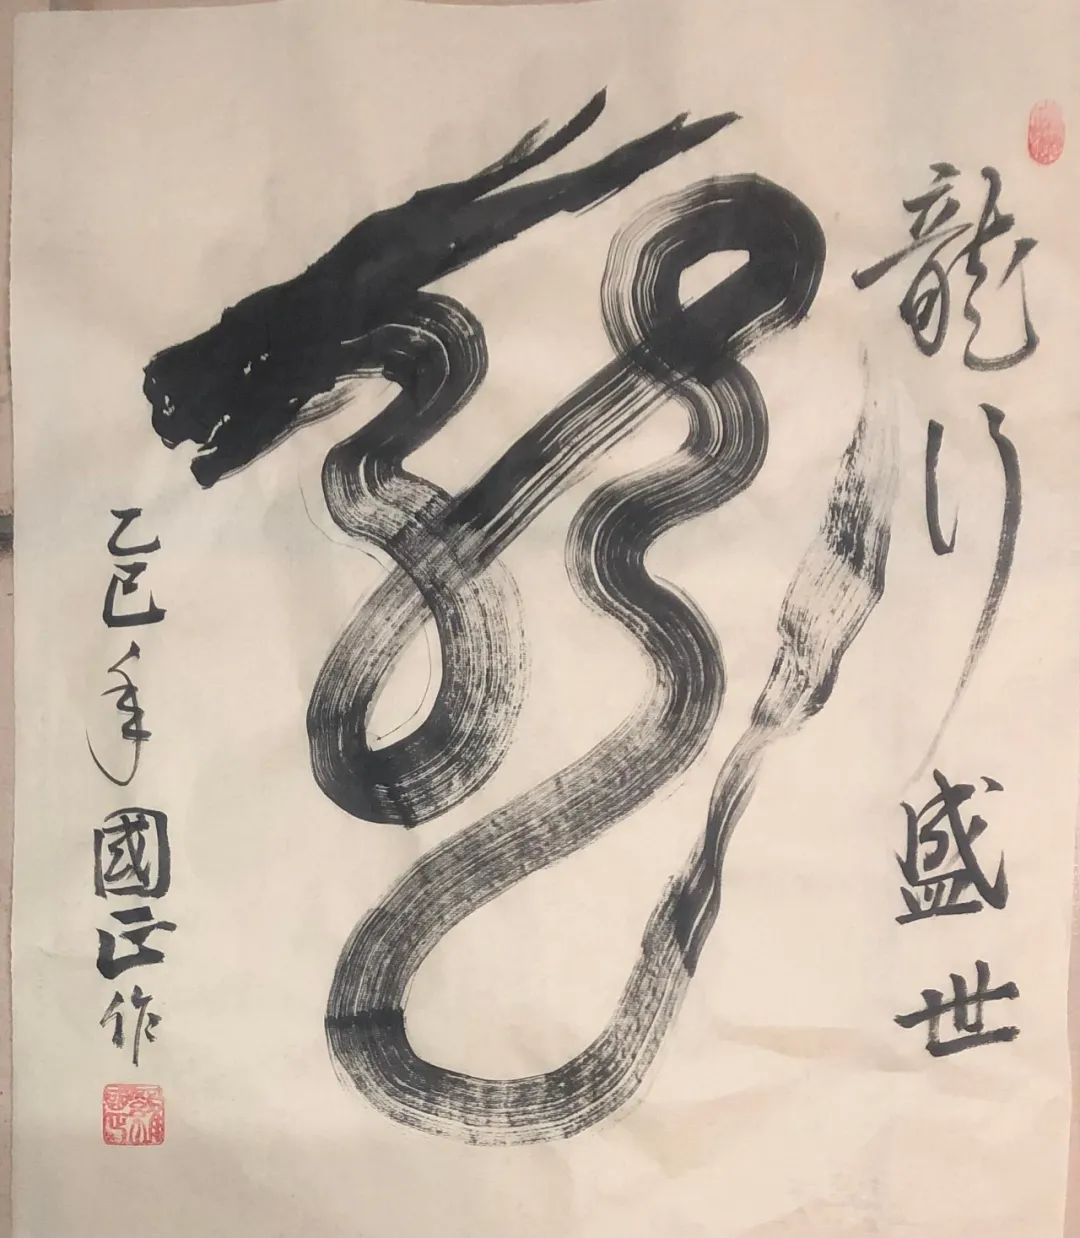 龍行盛世
乙巳年國正作